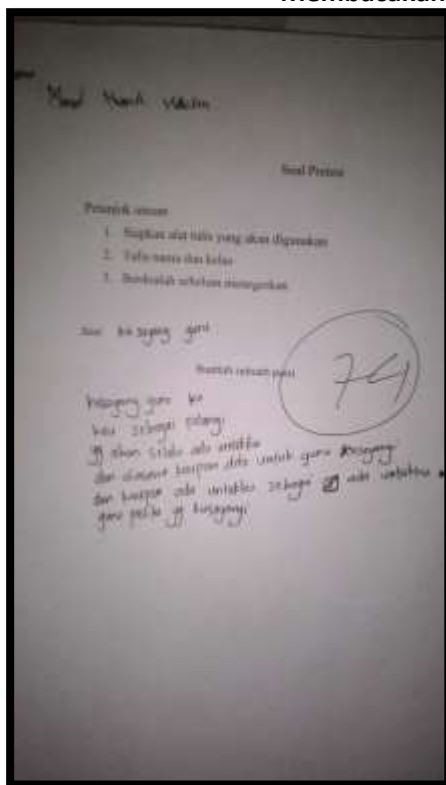 Soal Pretest
Petunjuk umum
1. Siapkan alat tulis yang akan digunakan
2. Tulis nama dan kelas
3. Berdoalah sebelum mengerjakan
guru
Buatlah sebuah puisi
74
kusayang guru ku
kau sebagai pelangi
yg akan selalu ada untukku
dan dimana kaupun ada untuk guru kusayangi
dan kaupun ada untukku sebagai ada untukku
guru yg kusayangi